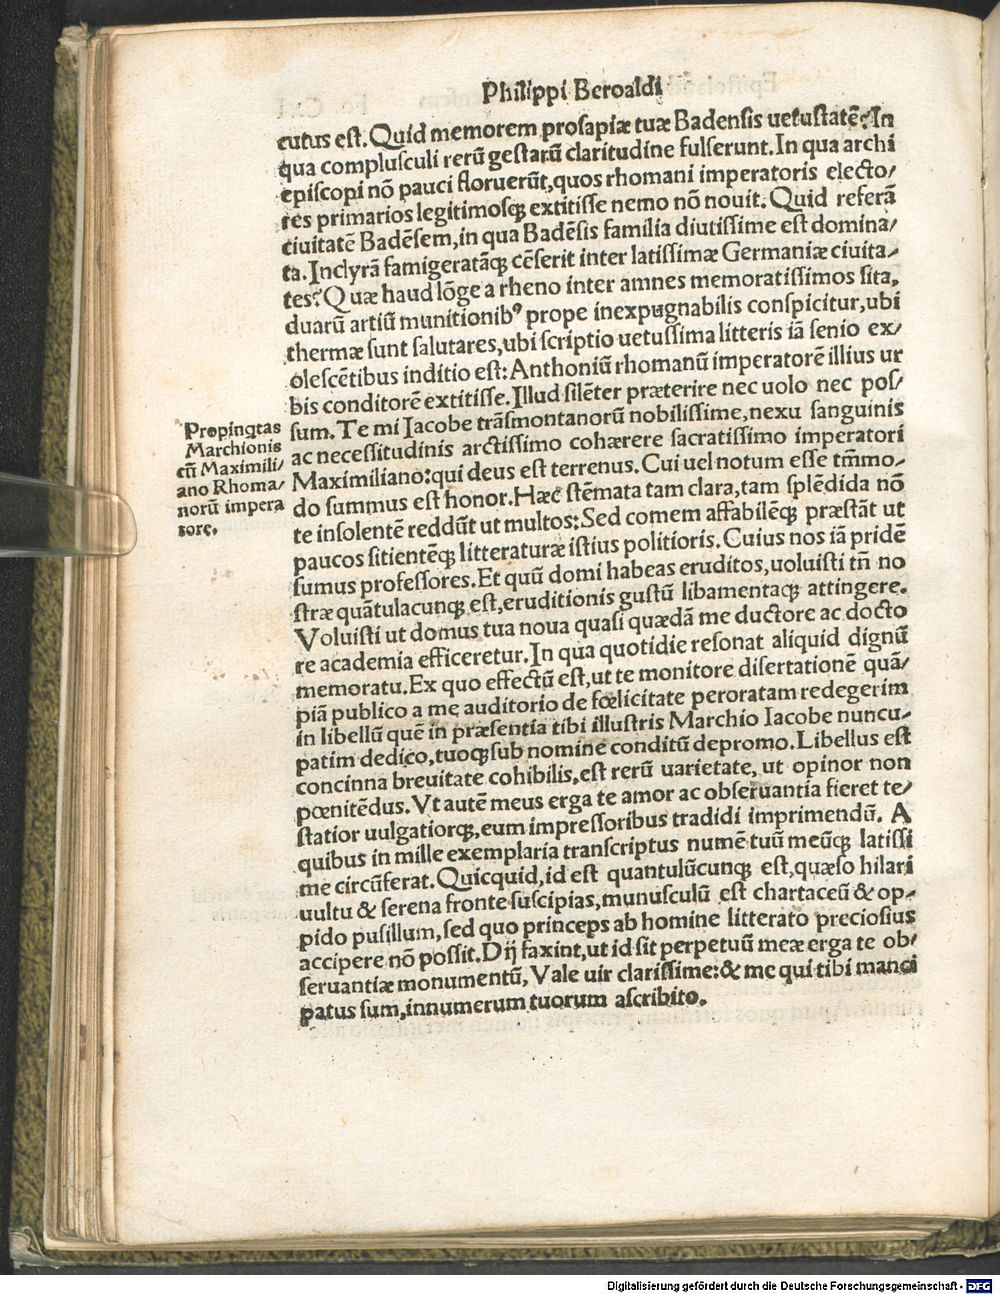 Philippi Beroaldi
cutus est. Quid memorem prosapiæ tuæ Badensis uetustatē? In
qua complusculi rerū gestarū claritudine fulserunt. In qua archi
episcopi nō pauci floruerūt, quos rhomani imperatoris electo/
res primarios legitimosqȝ extitisse nemo nō nouit. Quid referā
ciuitatē Badēsem, in qua Badēsis familia diutissime est domina/
ta. Inclyrā famigeratāqȝ cēserit inter latissimæ Germaniæ ciuita/
tes? Quæ haud lōge a rheno inter amnes memoratissimos sita,
duarū artiū munitionibꝰ prope inexpugnabilis conspicitur, ubi
thermæ sunt salutares, ubi scriptio uetussima litteris iā senio ex/
olescētibus inditio est: Anthoniū rhomanū imperatorē illius ur
bis conditorē extitisse. Illud silēter præterire nec uolo nec pos/
sum. Te mi Iacobe trāsmontanorū nobilissime, nexu sanguinis
ac necessitudinis arctissimo cohærere sacratissimo imperatori
Maximiliano: qui deus est terrenus. Cui uel notum esse tm̄mo/
do summus est honor. Hæc stēmata tam clara, tam splēdida nō
te insolentē reddūt ut multos: Sed comem affabilēqȝ præstāt ut
paucos sitientēqȝ litteraturæ istius politioris. Cuius nos iā pridē
sumus professores. Et quū domi habeas eruditos, uoluisti tñ no
stræ quātulacunqȝ est, eruditionis gustū libamentaqȝ attingere.
Voluisti ut domus tua noua quasi quædā me ductore ac docto
re academia efficeretur. In qua quotidie resonat aliquid dignū
memoratu. Ex quo effectū est, ut te monitore disertationē quā/
piā publico a me auditorio de fœlicitate peroratam redegerim
in libellū quē in præsentia tibi illustris Marchio Iacobe nuncu/
patim dedico, tuoqȝ sub nomine conditū depromo. Libellus est
concinna breuitate cohibilis, est rerū uarietate, ut opinor non
pœnitēdus. Vt autē meus erga te amor ac obseruantia fieret te/
statior uulgatiorqȝ, eum impressoribus tradidi imprimendū. A
quibus in mille exemplaria transcriptus numē tuū meūqȝ latissi
me circūferat. Quicquid, id est quantulūcunqȝ est, quæso hilari
uultu & serena fronte suscipias, munusculū est chartaceū & op/
pido pusillum, sed quo princeps ab homine litterato preciosius
accipere nō possit. Dij faxint, ut id sit perpetuū meæ erga te ob/
seruantiæ monumentū, Vale uir clarissime: & me qui tibi manci
patus sum, innumerum tuorum ascribito.
Propinqtas
Marchionis
cū Maximili/
ano Rhoma/
norū impera
tore.
Digitalisierung gefördert durch die Deutsche Forschungsgemeinschaft - DFG